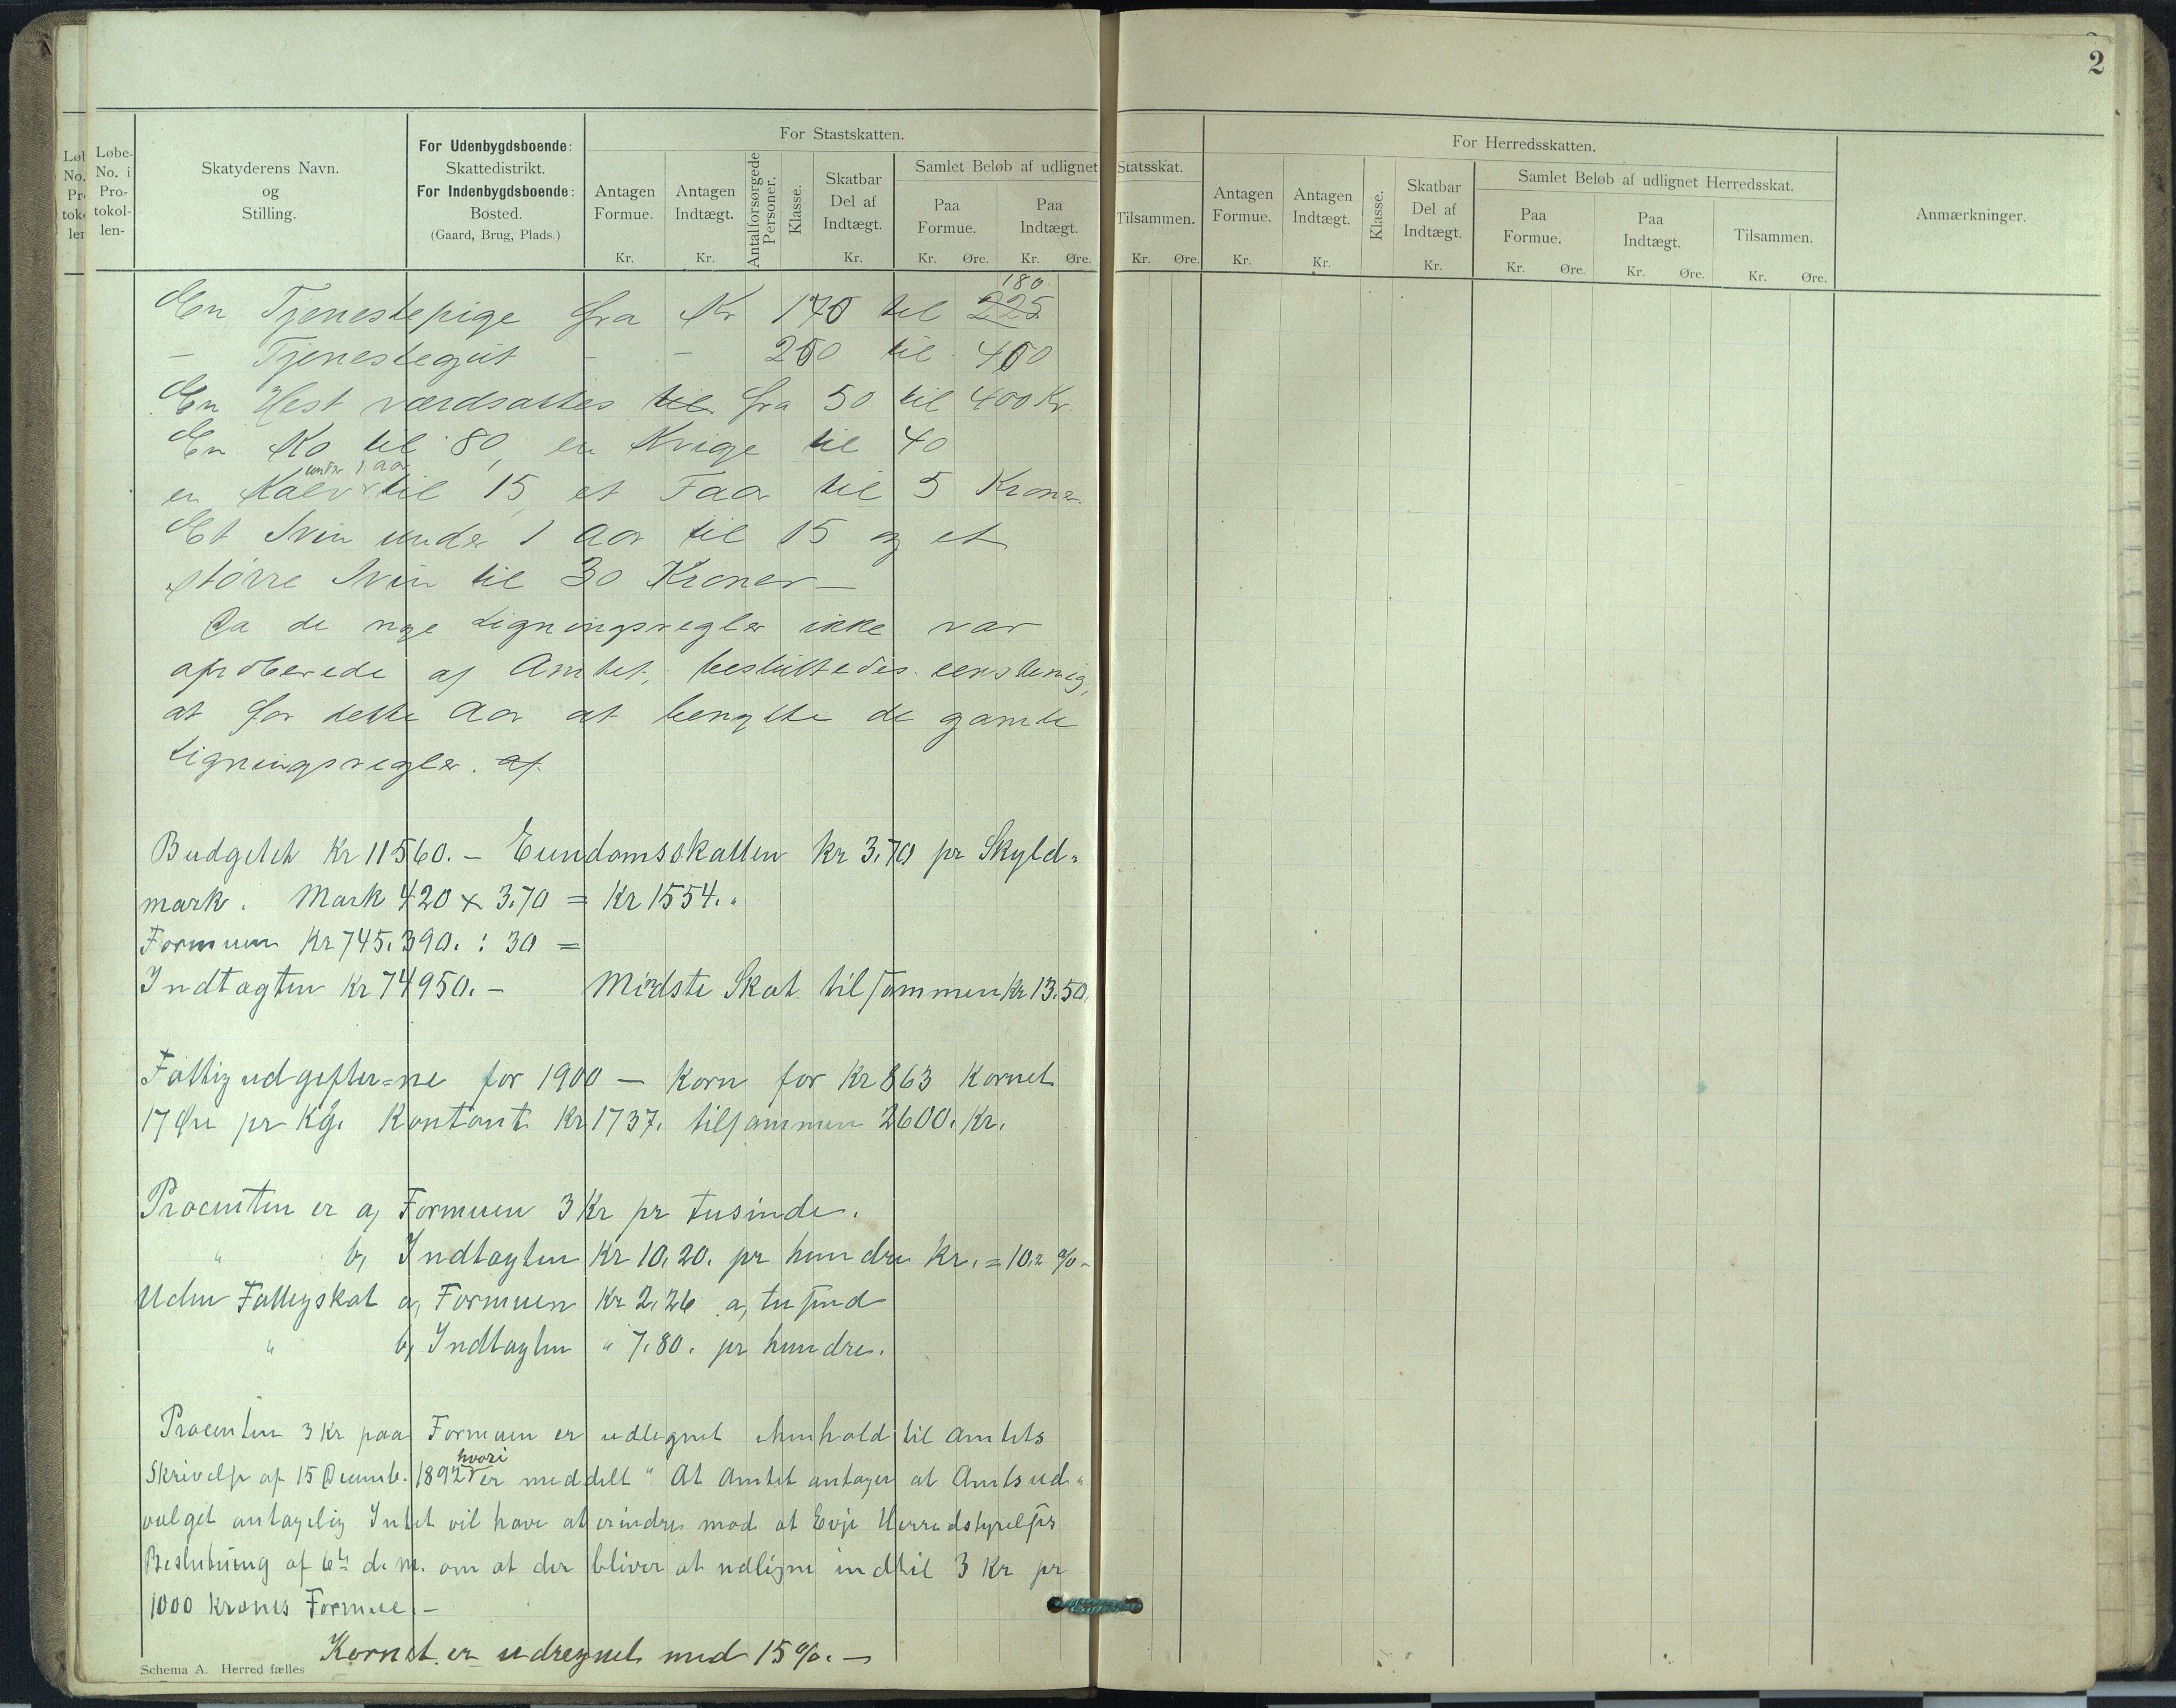 2
Løbe-
No. i
Pro-
tokol-
len-
Skatyderens Navn.
og
Stilling.
For Udenbygdsboende:
Skattedistrikt.
For Indenbygdsboende:
Bosted.
(Gaard, Brug, Plads.)
For Stastskatten.
Antagen
Formue.
Kr.
Antagen
Indtægt.
Kr.
Antal forsørgede
Personer.
Klasse.
Skatbar
Del af
Indtægt.
Kr.
Samlet Beløb af udlignet Statsskat.
Paa
Formue.
Kr. Øre.
Paa
Indtægt.
Kr. Øre.
Tilsammen.
Kr. Øre.
For Herredsskatten.
Antagen
Formue.
Kr.
Antagen
Indtægt.
Kr.
Klasse.
Skatbar
Del af
Indtægt.
Kr.
Samlet Beløb af udlignet Herredsskat.
Paa
Formue.
Kr. Øre.
Paa
Indtægt.
Kr. Øre.
Tilsammen.
Kr. Øre.
Anmærkninger.
180
En Tjenestepige fra Kr 170 til 225
- Tjenestegut - - 250 til 400
En Hest værdsættes til fra 50 til 400 Kr.
En Ko til 80, en Kvige til 40
under 1 aar
en Kalv til 15, et Faar til 5 Kroner.
Et Svin under 1 Aar til 15 og et
større Svin til 30 Kroner —
Da de nye Ligningsregler ikke var
aproberede af Amtet, besluttedes eenstemig,
at for dette Aar at benytte de gamle
Ligningsregler. af
Budgetet Kr 11560. – Eiendomsskatten Kr 3.70 pr Skyld-
mark. Mark 420 x 3.70 = Kr 1554. "
Formuen Kr 745.390. : 30 =
Indtægten Kr 74950. – Mindste Skat tilsammen Kr 13.50.
Fattigudgifter=ne for 1900 — Korn for Kr 863 Kornet
17 Øre pr Kg. Kontant Kr 1737. tilsammen 2600. Kr.
Procenten er a, Formuen 3 Kr pr tusinde.
" b, Indtægten Kr 10.20. pr hundre Kr. = 10.2 %. –
Uden Fattigskat a, Formuen Kr 2.26 a, tusind
" b, Indtægten " 7.80. pr hundre.
Procenten 3 Kr paa Formuen er udlignet i henhold til Amtets
hvori
Skrivelse af 15 Decemb. 1892 er meddelt " At Amtet antager at Amtsud-
valget antagelig Intet vil have at erindre mod at Evje Herredstyrelses
Beslutning af 6te d. m. om at der bliver at udligne indtil 3 Kr pr
1000 Kroners Formue. –
Kornet er udregnet med 15 %. —
Schema A. Herred fælles